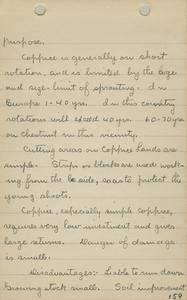 purpose.
Coppice is generally on short
rotation, and is limited by the age
and size limit of sprouting. In
Europe 1-40 yrs. In this country
rotations will exceed 40 yrs. 60-70 yrs
on chestnut in this vicinity.
Cutting areas on Coppice lands are
simple. Strips or blocks are used work-
ing from the lee side, so as to protect the
young shoots.
Coppice, especially simple coppice,
requires very low investment and gives
large returns. Danger of damage
is small.
Disadvantages:- Liable to run down
Growing stock small. Soil improvement
159